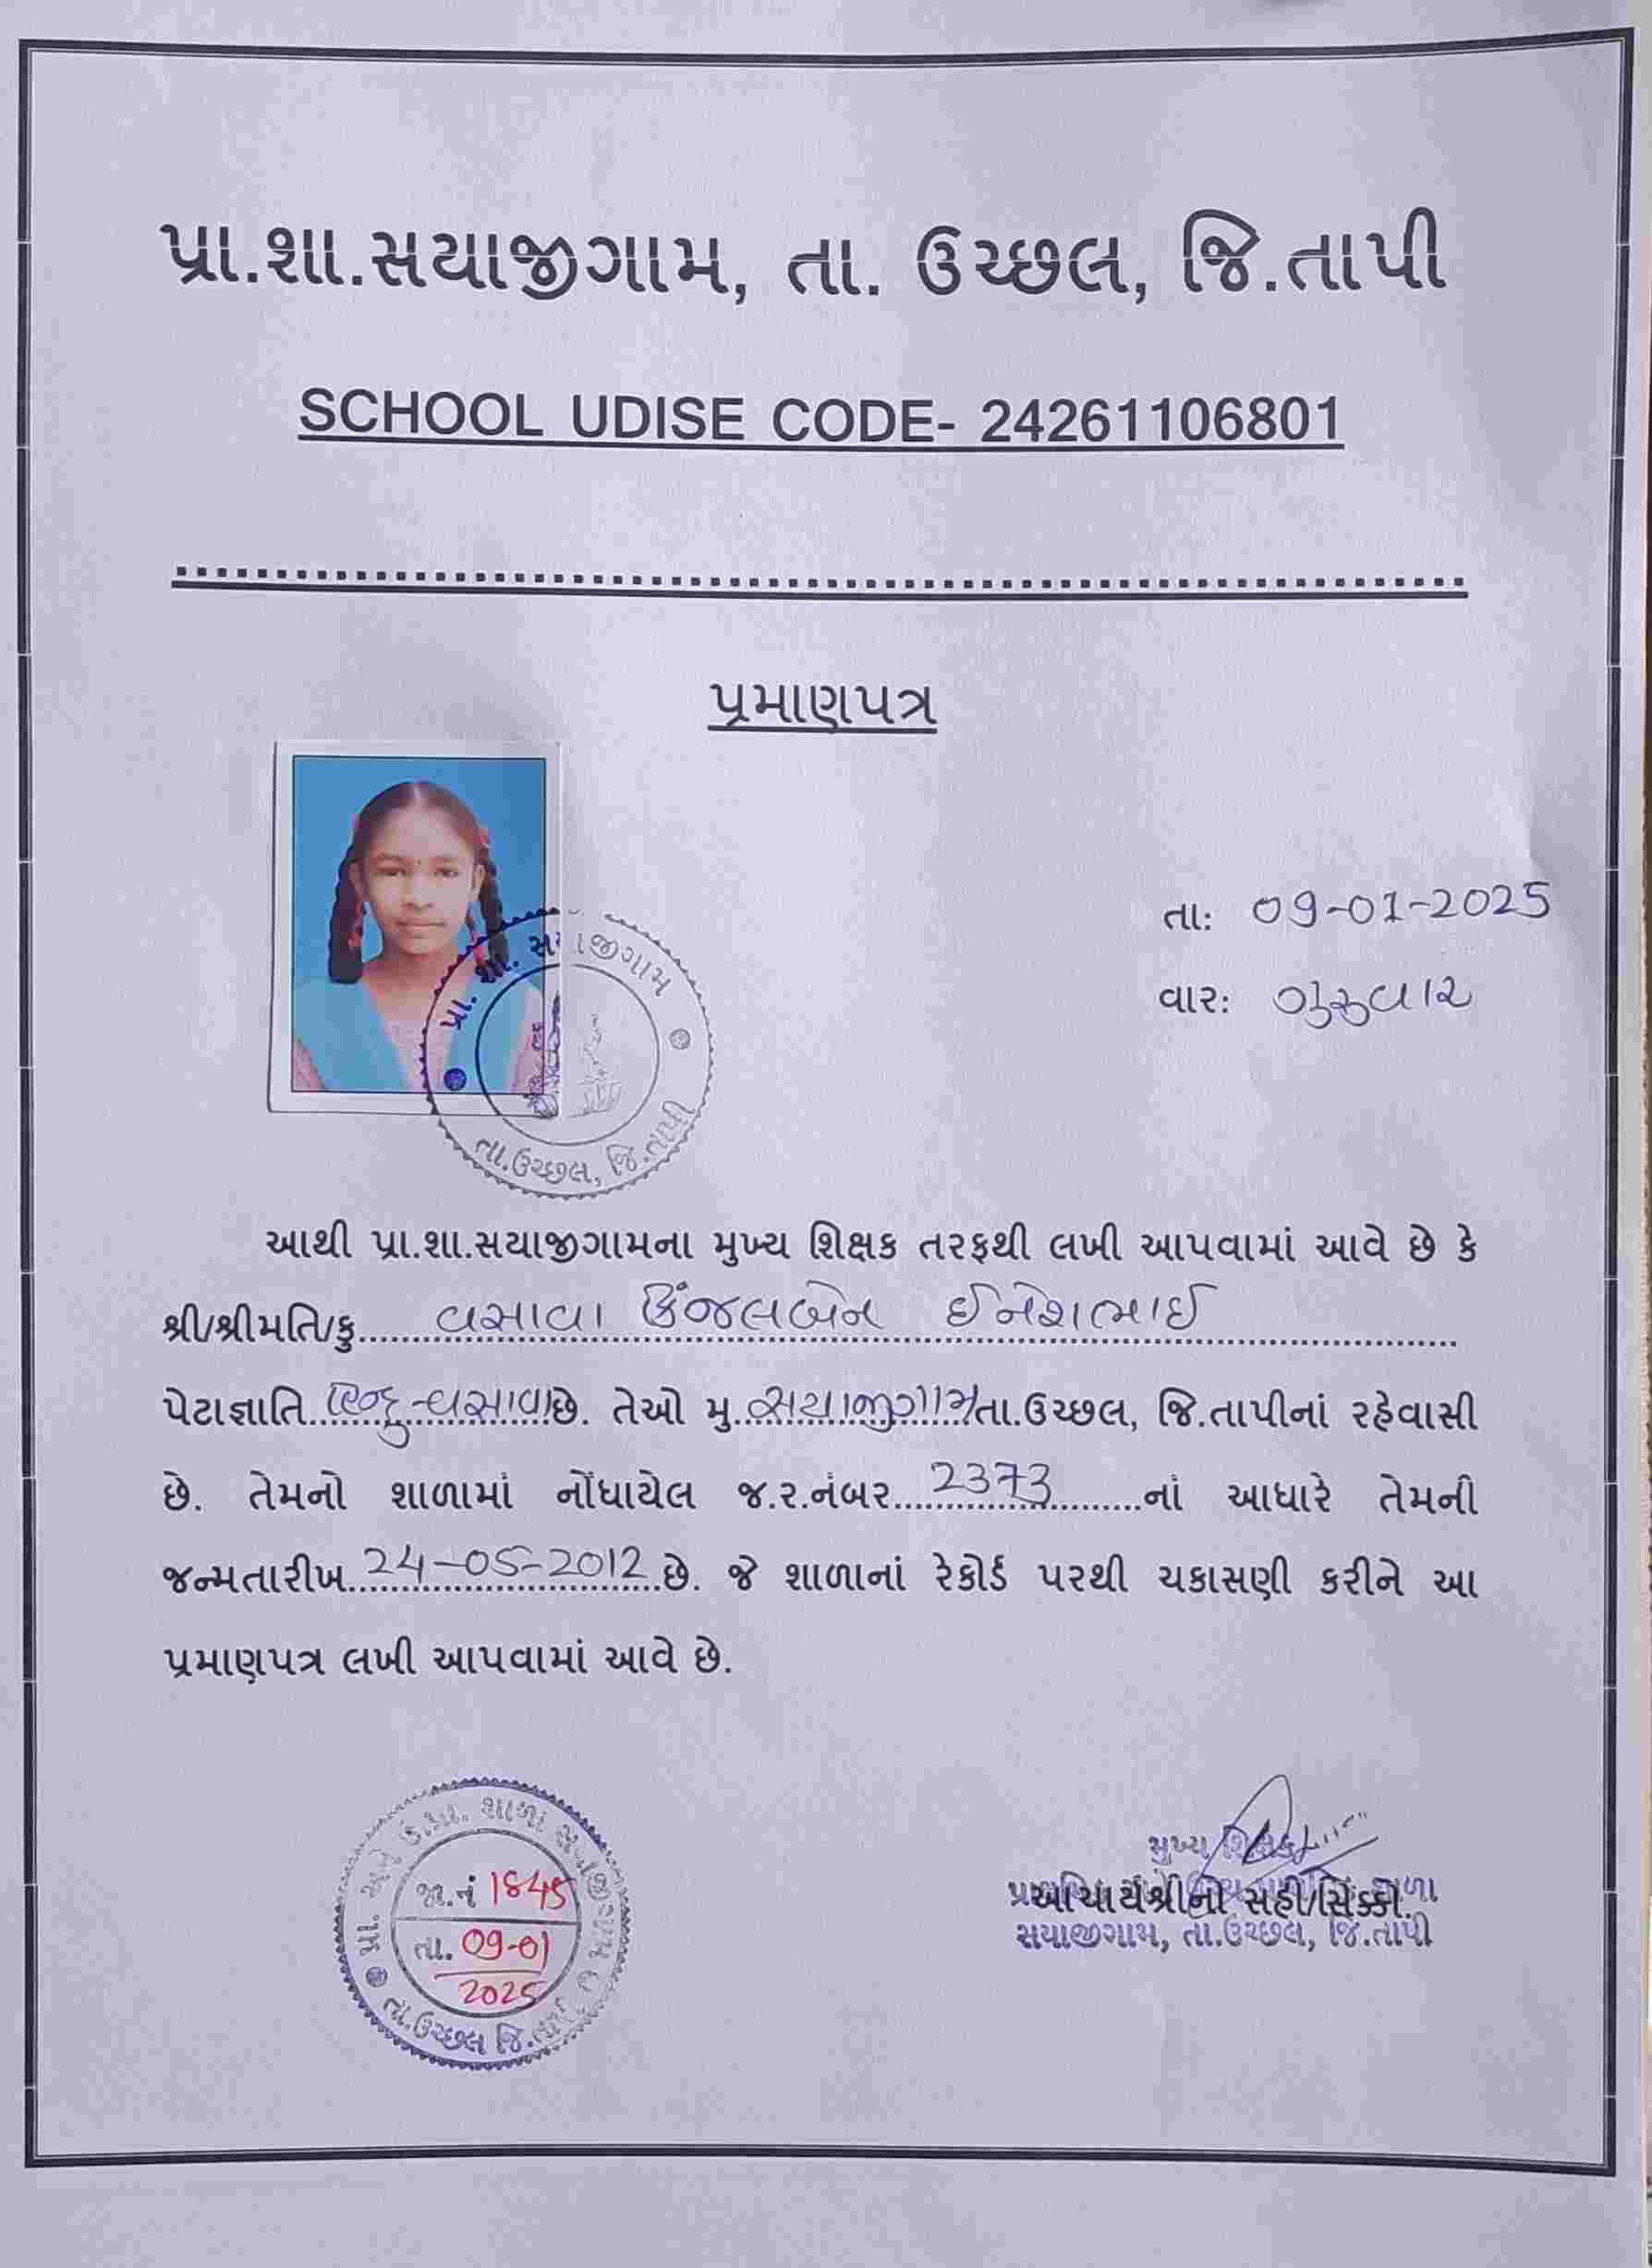 પ્રા.શા.સયાજીગામ, તા. ઉચ્છલ, જિ.તાપી
SCHOOL UDISE CODE- 24261106801
પ્રમાણપત્ર
તા: 09-01-2025
વાર: ગુરુવાર
પ્રા. શા. સયાજીગામ
તા.ઉચ્છલ, જિ.તાપી
આથી પ્રા.શા.સયાજીગામના મુખ્ય શિક્ષક તરફથી લખી આપવામાં આવે છે કે
શ્રી/શ્રીમતિ/કુ......વસાવા કિંજલબેન ઈનેશભાઈ......
પેટાજ્ઞાતિ..હિન્દુ-વસાવા છે. તેઓ મુ..સયાજીગામ તા.ઉચ્છલ, જિ.તાપીનાં રહેવાસી
છે. તેમનો શાળામાં નોંધાયેલ જ.ર.નંબર....2373.......નાં આધારે તેમની
જન્મતારીખ..24-05-2012..છે. જે શાળાનાં રેકોર્ડ પરથી ચકાસણી કરીને આ
પ્રમાણપત્ર લખી આપવામાં આવે છે.
પ્રા. અને ઉ.પ્રા. શાળા સયાજીગામ
જા.નં 1845
તા. 09-01
2025
તા.ઉચ્છલ જિ.તાપી
મુખ્ય શિક્ષક
આચાર્યશ્રીની સહી/સિક્કો.
સયાજીગામ, તા.ઉચ્છલ, જિ.તાપી